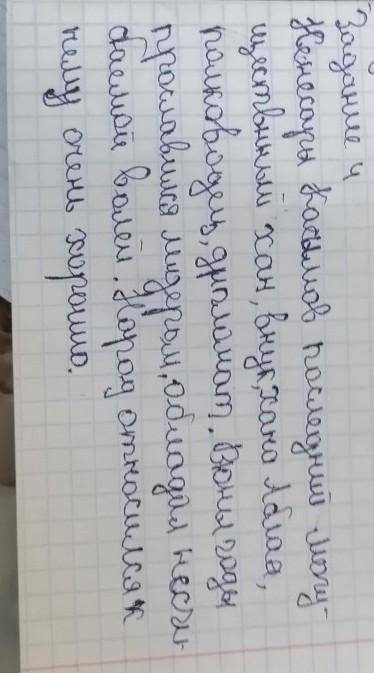 Задание 4
Кенесары Касымов последний могу-
щественный хан, внук хана Аблая,
полководец, дипломат. В юные годы
прославился лидером, обладал несги-
баемой волей. Народ относился к
нему очень хорошо.